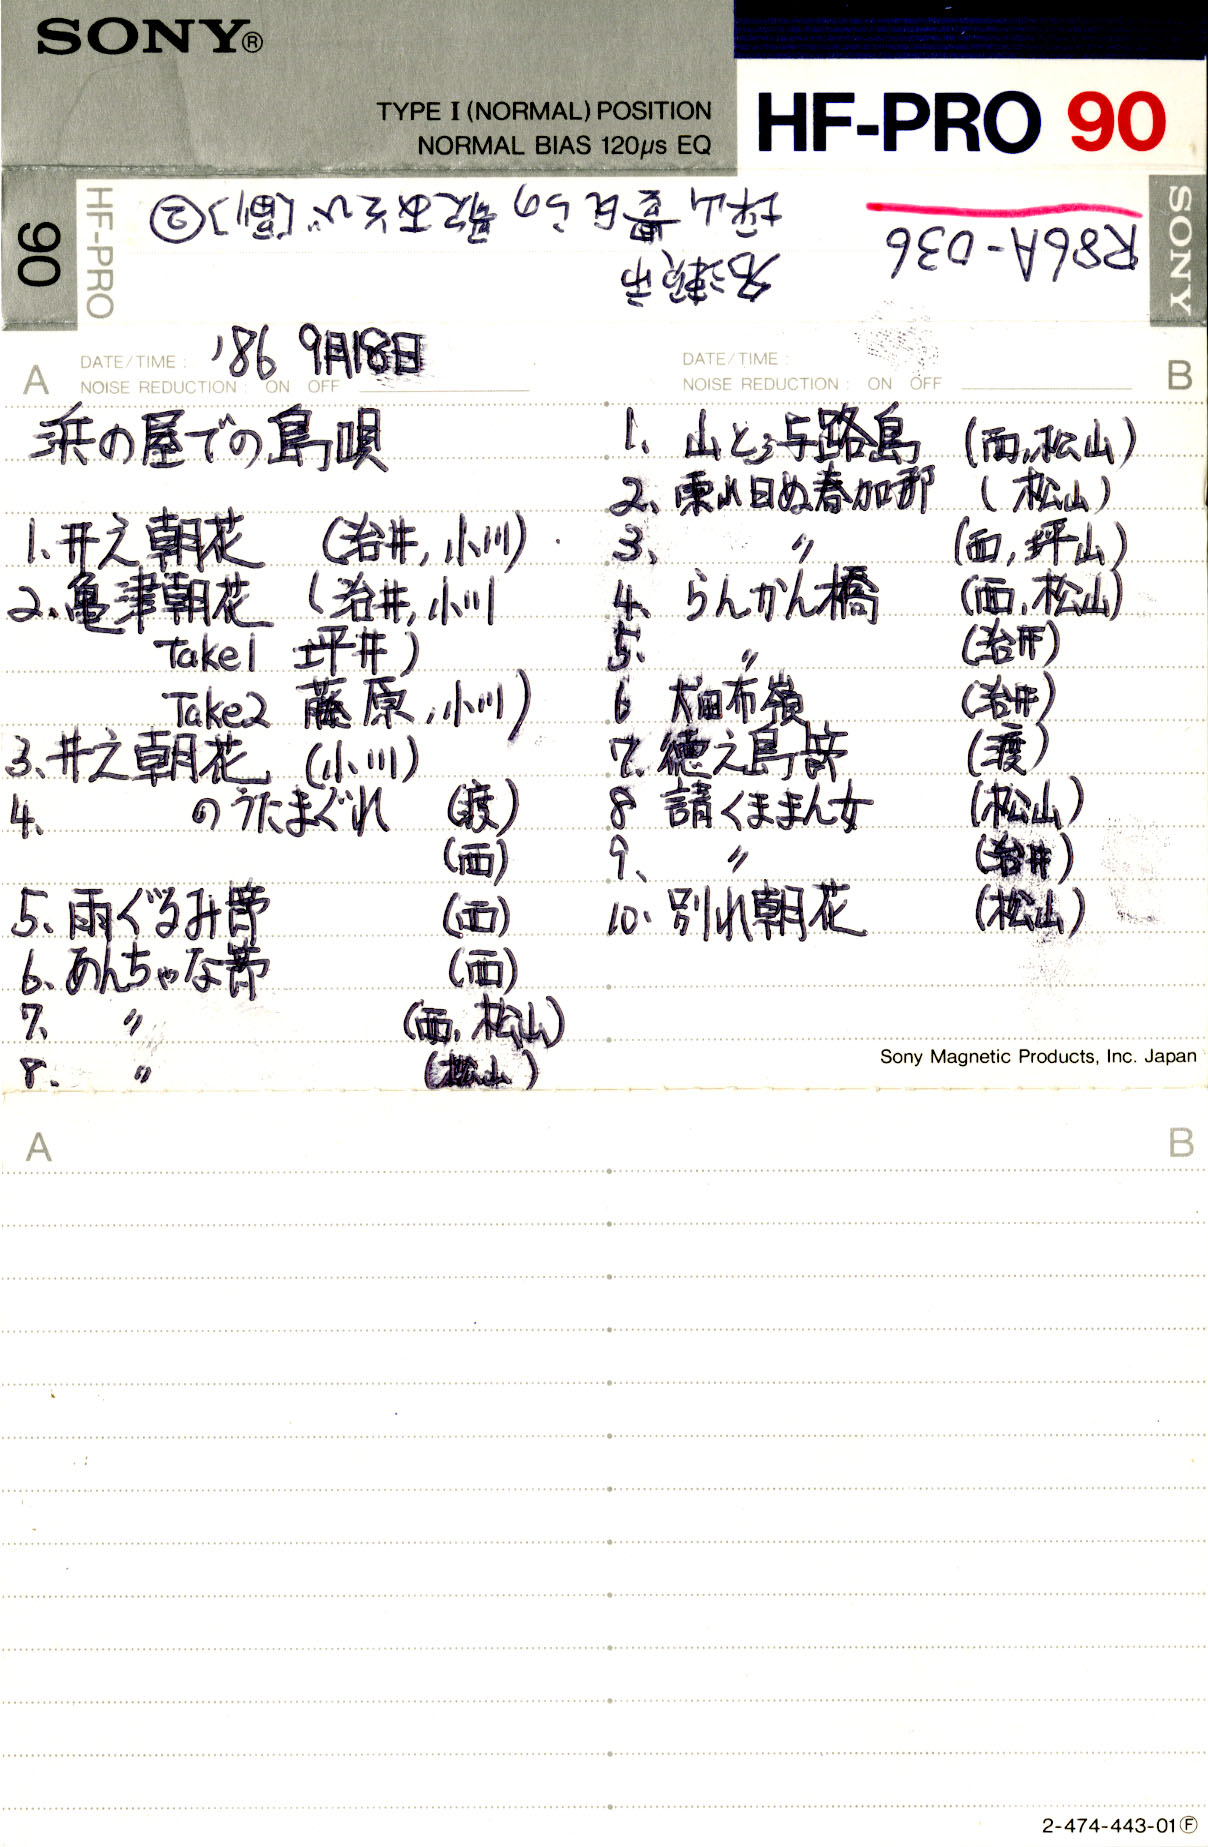 SONY®
TYPE I (NORMAL) POSITION
NORMAL BIAS 120μs EQ
HF-PRO 90
90
HF-PRO
R86A-036
名瀬市
坪山豊氏らの歌あそび [劉]②
SONY
A
DATE/TIME : '86 9月18日
NOISE REDUCTION : ON OFF
浜の屋での島唄
1. 井之朝花 (治井, 小川)
2. 亀津朝花 (治井, 小川
Take1 坪井)
Take2 藤原, 小川)
3. 井之朝花 (小川)
4. のうたまぐれ (渡)
(西)
5. 雨ぐるみ節 (西)
6. あんちゃな節 (西)
7. 〃 (西, 松山)
8. 〃 (松山)
B
DATE/TIME :
NOISE REDUCTION : ON OFF
1. 山とぅ与路島 (西, 松山)
2. 乘れ日ぬ春加那 (松山)
3. 〃 (西, 坪山)
4. らんかん橋 (西, 松山)
5. 〃 (治井)
6 犬田布嶺 (治井)
7. 徳之島節 (渡)
8 請くままん女 (松山)
9. 〃 (治井)
10. 別れ朝花 (松山)
Sony Magnetic Products, Inc. Japan
A
B
2-474-443-01Ⓕ